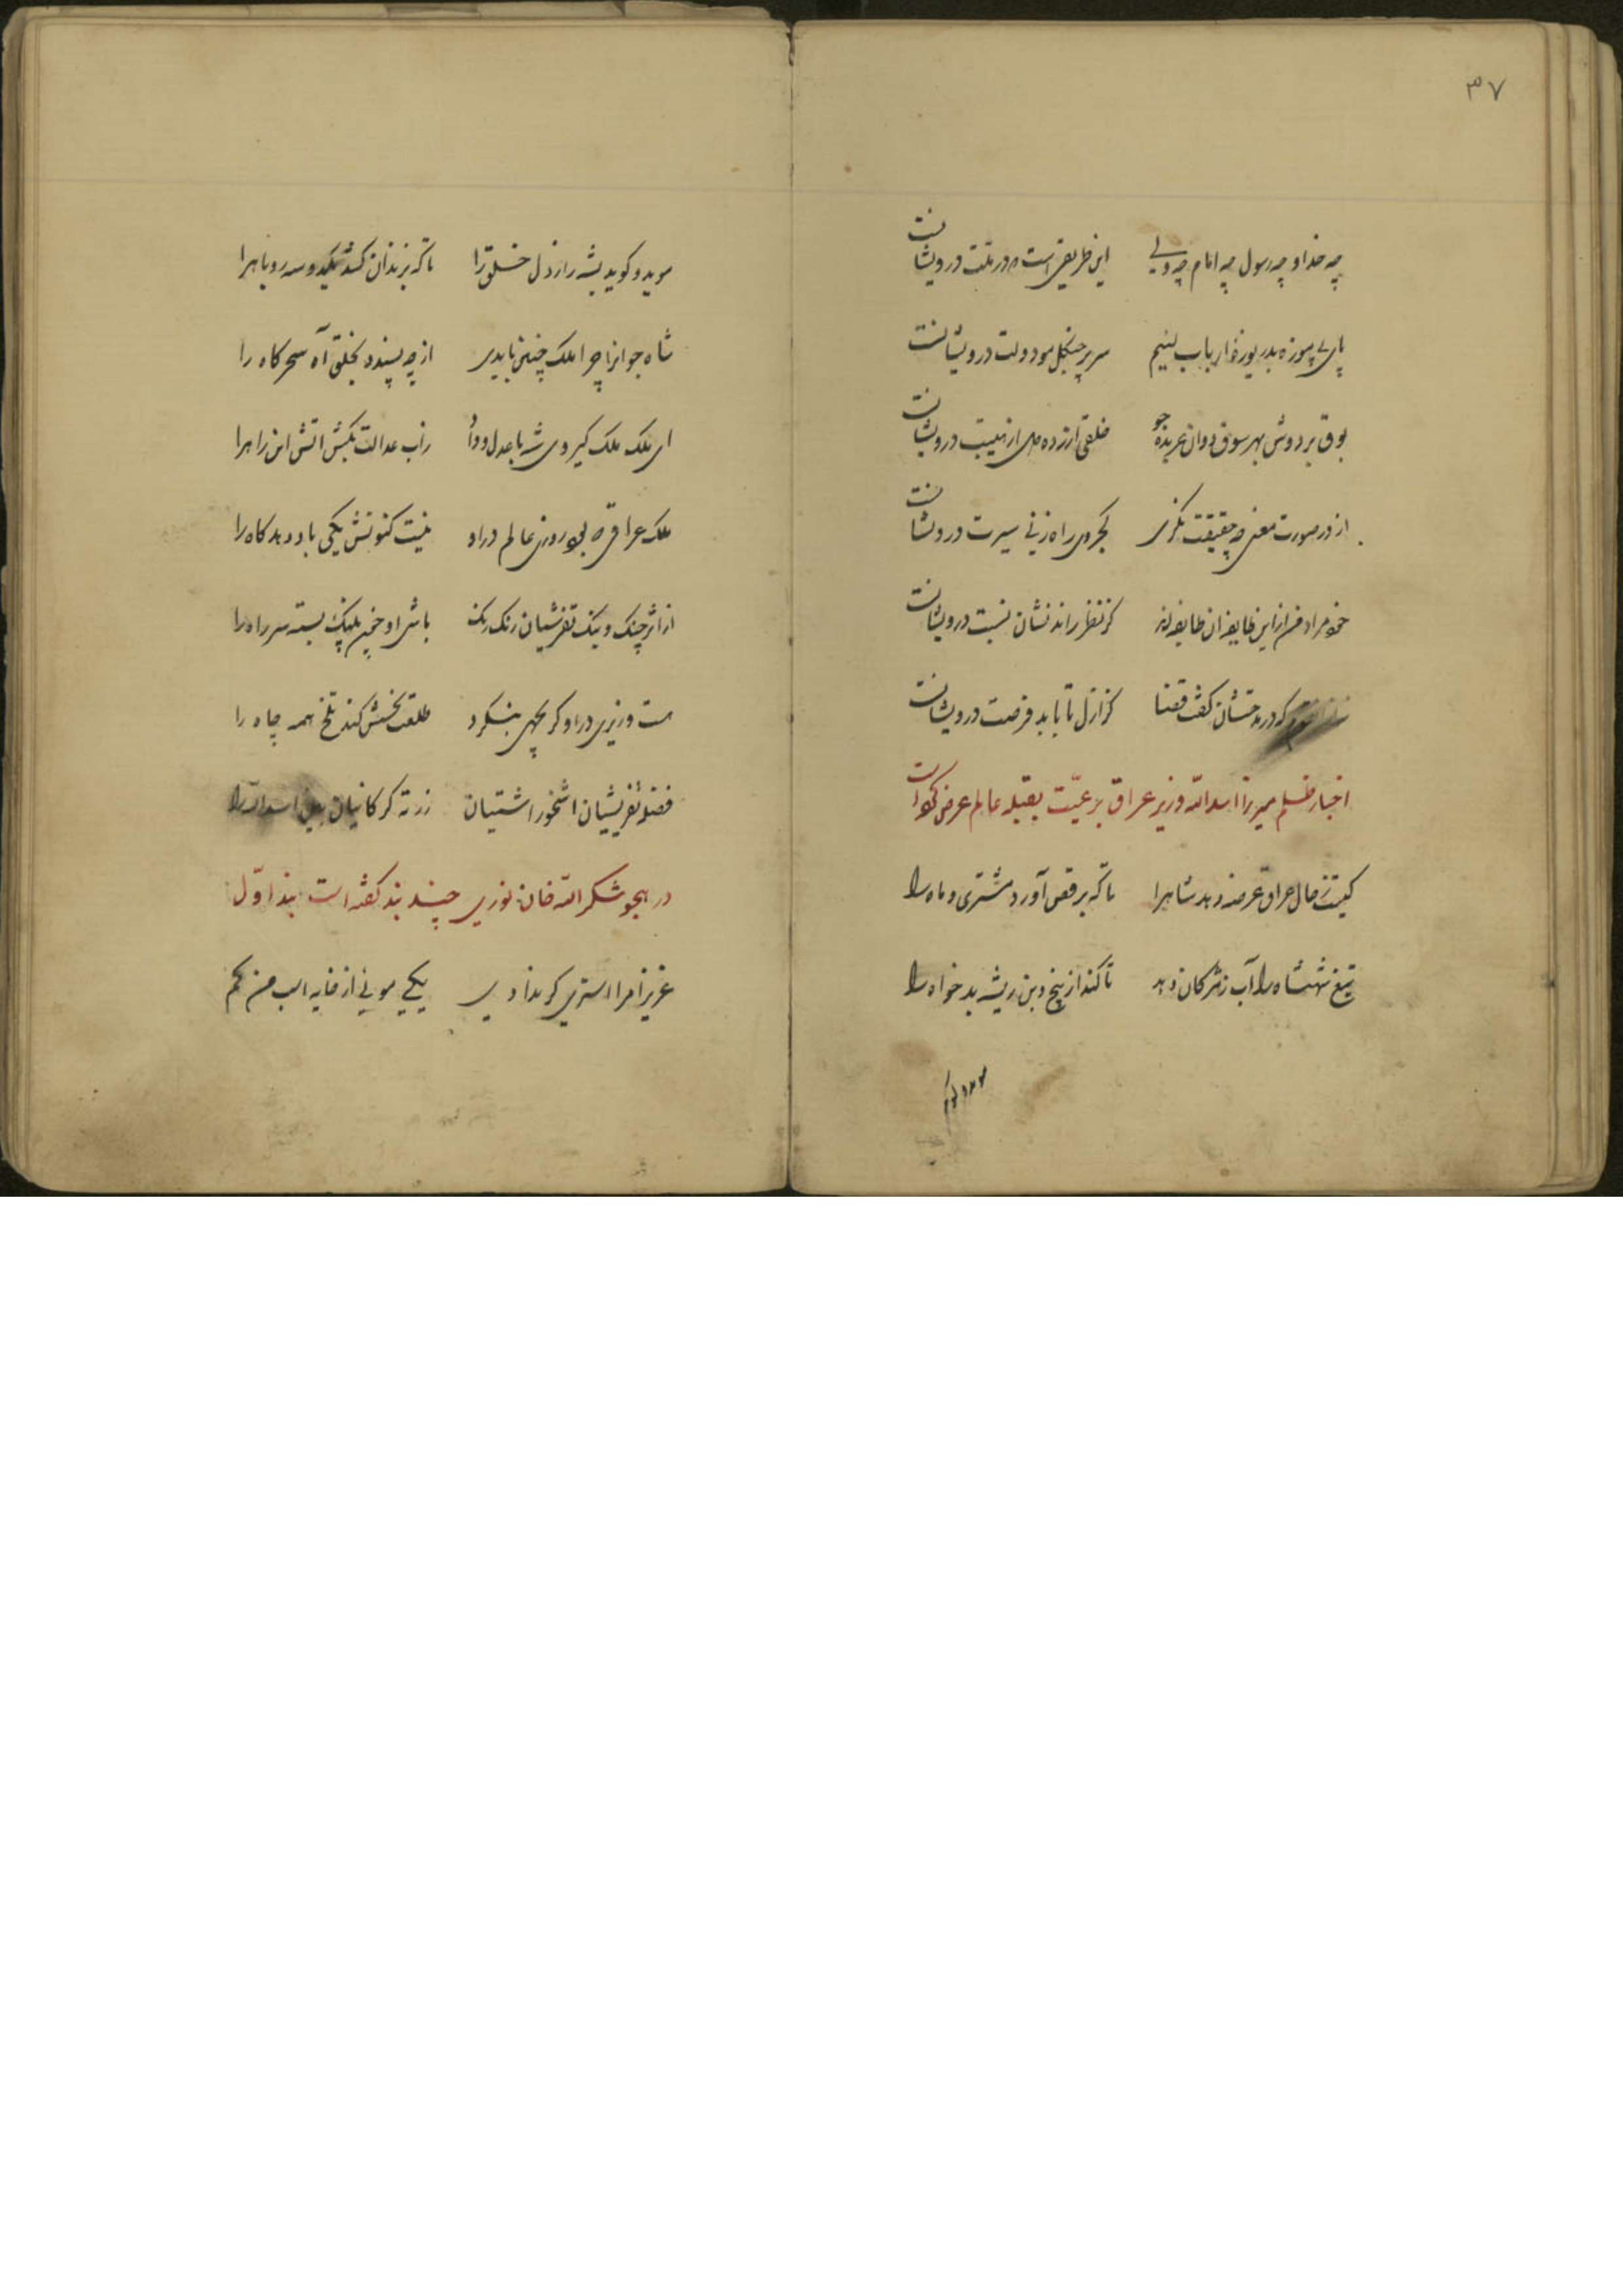 ۳۷
چه خدا و چه رسول چه امام چه ولی این طریقی است در ملت درویشانست
پای بی موزه بدریوزه ارباب لئیم سر پر چنگل مو دولت درویشانست
بوق بر دوش بهر سوق دوان عربده جو خلقی آزرده دل از هیبت درویشانست
از در صورت معنی چه حقیقت نگری کجروی راه زنی سیرت درویشانست
خود مراد من از این طایفه ان طایفه اند کز نظر راندنشان نسبت درویشانست
که در بدختشان گفت قضا کز ازل تا بابد فرصت درویشانست
اخبار ظلم میرزا اسدالله وزیر عراق برعیّت بقبله عالم عرض کرده است
کیست ز حال عراق عرضه دهد شاهرا تا که برقص آورد مشتری و ماه را
تیغ شهنشاه را آب ز مژگان دهد تا کند از بیخ و بن ریشه بدخواه را
موید و گوید بشه راز دل خلق را تا که بزندان کشد یکدو سه روباهرا
شاه جوانرا چرا ملک چنین بایدی از چه پسندد بخلق آه سحرگاه را
ای ملک ملک گیر وی شه با عدل و داد زاب عدالت بکش اتش این راهرا
ملک عراقی که بود روزی عالم در او نیست کنونش یکی با دو دهد کاه را
از اثر چنگ و نیک تفرشیان رنگ رنگ باش او خمین پلنگ بسته سر راه را
هست وزیری در او گر بچهی بنگرد طلعت نحسش کند تلخ همه چاه را
فضله تفریشیان اشخور اشتیان زرته کرکانیان اسدالله را
در هجو شکرالله خان نوری چند بند گفته است بند اوّل
عزیزا مرا استری کر بدادی یکی موئی از خایه اسب من کم